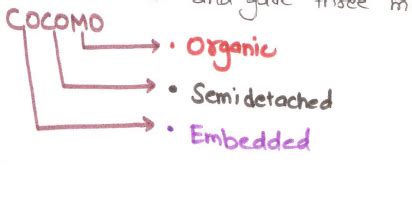 and gave three m
COCOMO
• Organic
• Semidetached
• Embedded